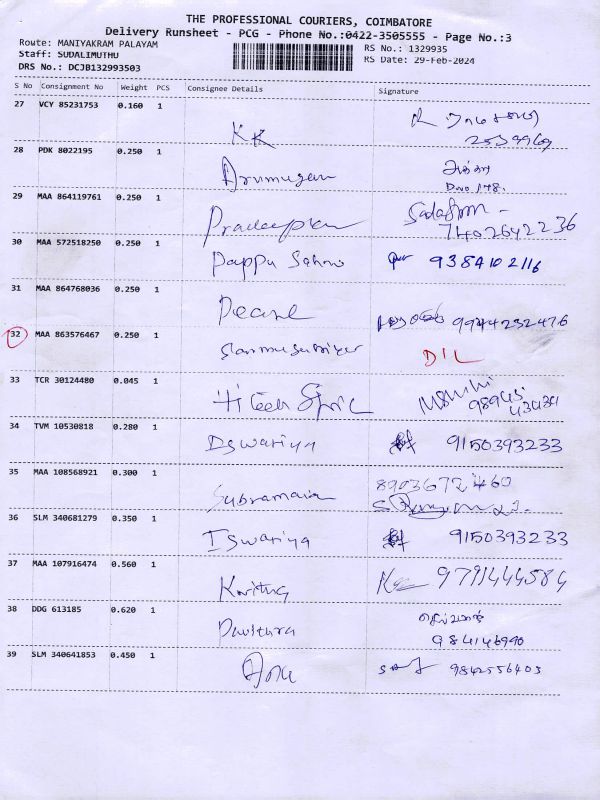 THE PROFESSIONAL COURIERS, COIMBATORE
Delivery Runsheet - PCG - Phone No.:0422-3505555 - Page No.:3
Route: MANIYAKRAM PALAYAM
RS No.: 1329935
Staff: SUDALIMUTHU
RS Date: 29-Feb-2024
DRS No.: DCJB132993503
S No Consignment No Weight PCS Consignee Details Signature
27 VCY 85231753 0.160 1
KK
28 PDK 8022195 0.250 1
Arumugam
D.no.178.
29 MAA 864119761 0.250 1
7402642236
30 MAA 572518250 0.250 1
Pappu Sahno 9384102116
31 MAA 864768036 0.250 1
Pearl 9944232476
32 MAA 863576467 0.250 1
DIL
33 TCR 30124480 0.045 1
Hi tech
34 TVM 10530818 0.280 1
Iswariya 9150393233
35 MAA 108568921 0.300 1
8903672460
36 SLM 340681279 0.350 1
Iswariya 9150393233
37 MAA 107916474 0.560 1
Kavitha 9791444584
38 DDG 613185 0.620 1
Pavithra
39 SLM 340641853 0.450 1
Anu 9842556403